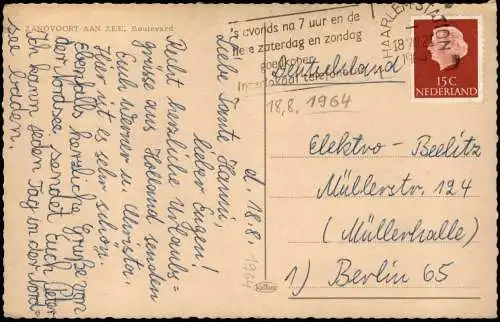 ZANDVOORT AAN ZEE, Boulevard
's avonds na 7 uur en de
hele zaterdag en zondag
goedkoper
HAARLEM STATION
18
15 C
NEDERLAND
Deutschland
18.8.1964
d. 18.8.
1964
Liebe Tante Hanni,
lieber Eugen!
Recht herzliche Urlaubs=
grüsse aus Holland senden
Euch Werner u. Christa.
Hier ist es sehr schön.
Ebenfalls herzliche Grüße von
der Nordsee sendet Euch Peter
Ich kann jeden Tag in der Nord-
see baden.
Elektro-Beelitz
Müllerstr. 124
(Müllerhalle)
1) Berlin 65